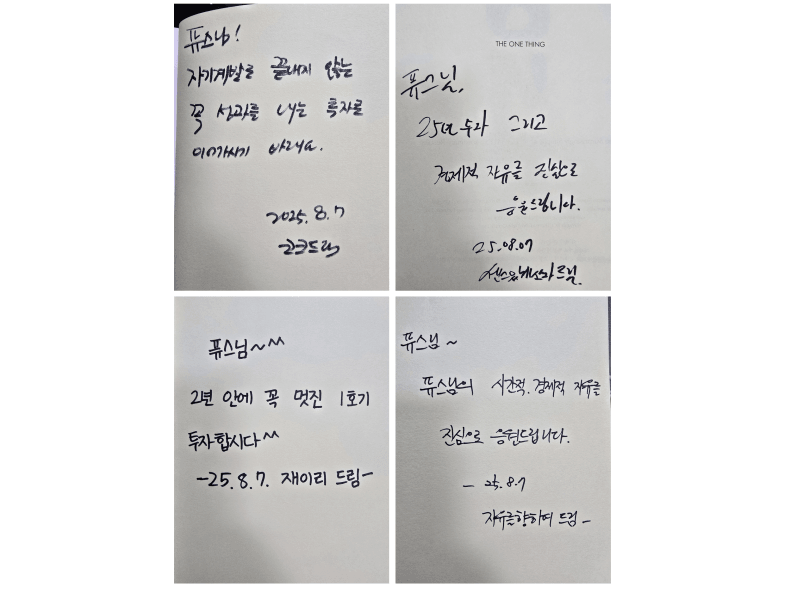 퓨스님!
자기계발로 끝내지 않는
꼭 성과를 내는 투자로
이어가시기 바래요.
2025. 8. 7
코크드림
THE ONE THING
퓨스님.
25년 투자 그리고
경제적 자유를 진심으로
응원드립니다.
25.08.07
드림.
퓨스님~^^
2년 안에 꼭 멋진 1호기
투자합시다^^
-25.8.7. 재이리 드림-
퓨스님~
퓨스님의 시간적, 경제적 자유를
진심으로 응원드립니다.
- 25.8.7
자유를향하여 드림-